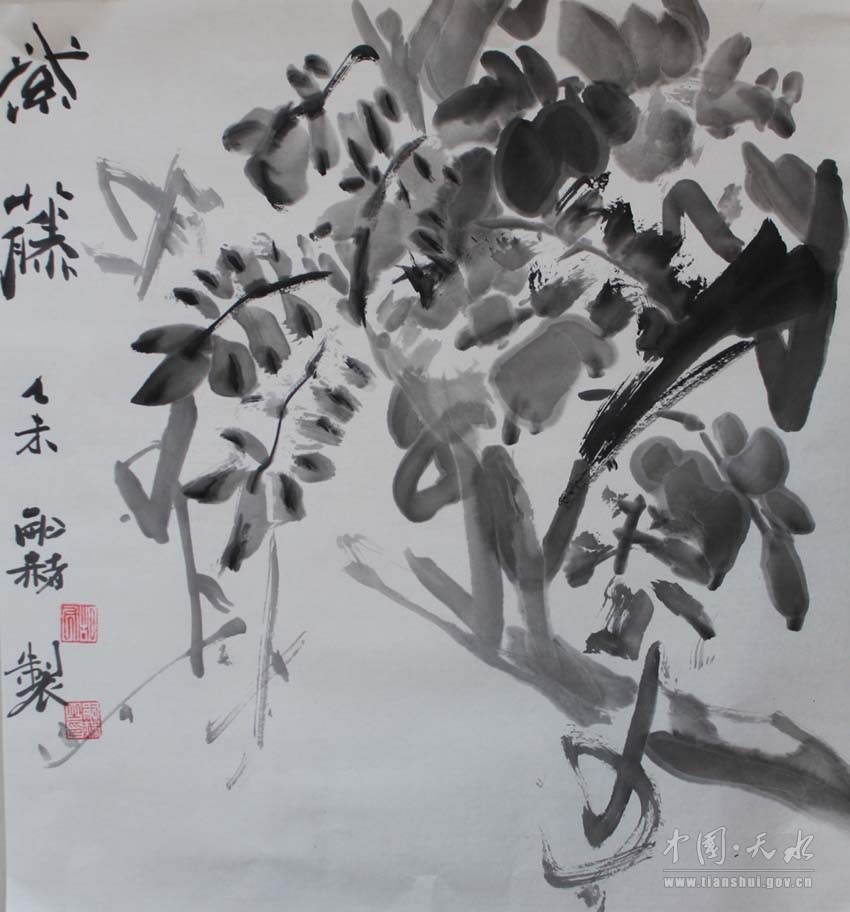 紫藤 乙未 赫 製
中國·天水
www.tianshui.gov.cn